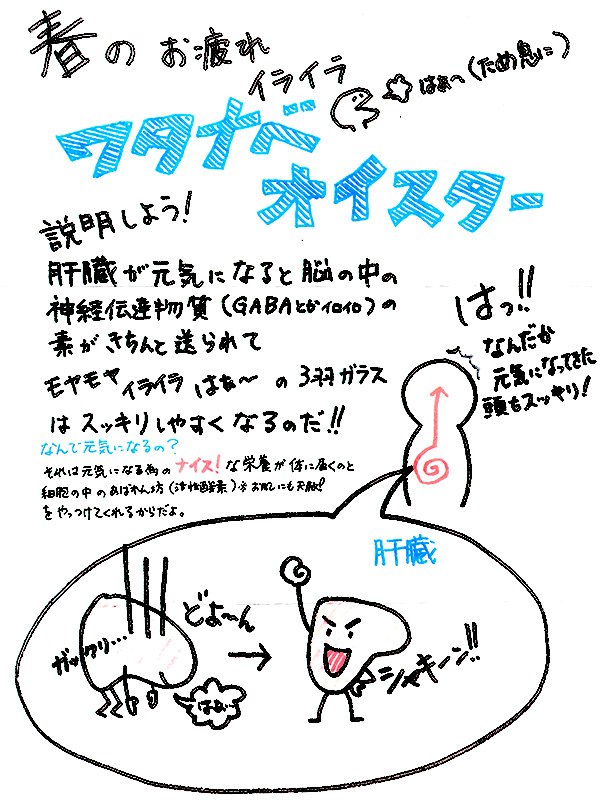 春の お疲れ
イライラ
はぁ〜(ため息に)
ワタナベ
オイスター
説明しよう!
肝臓が元気になると脳の中の
神経伝達物質(GABAとかイロイロ)の
素がきちんと送られて
モヤモヤ イライラ はぁ〜 の 3羽ガラス
はスッキリしやすくなるのだ!!
なんで元気になるの?
それは元気になる為のナイス!な栄養が体に届くのと
細胞の中のあばれん坊(活性酸素)※お肌にも天敵!
をやっつけてくれるからだよ。
はっ!!
なんだか
元気になってきた
頭もスッキリ!
肝臓
ガックリ...
どよ〜ん
はぁ...
シャキーン!!